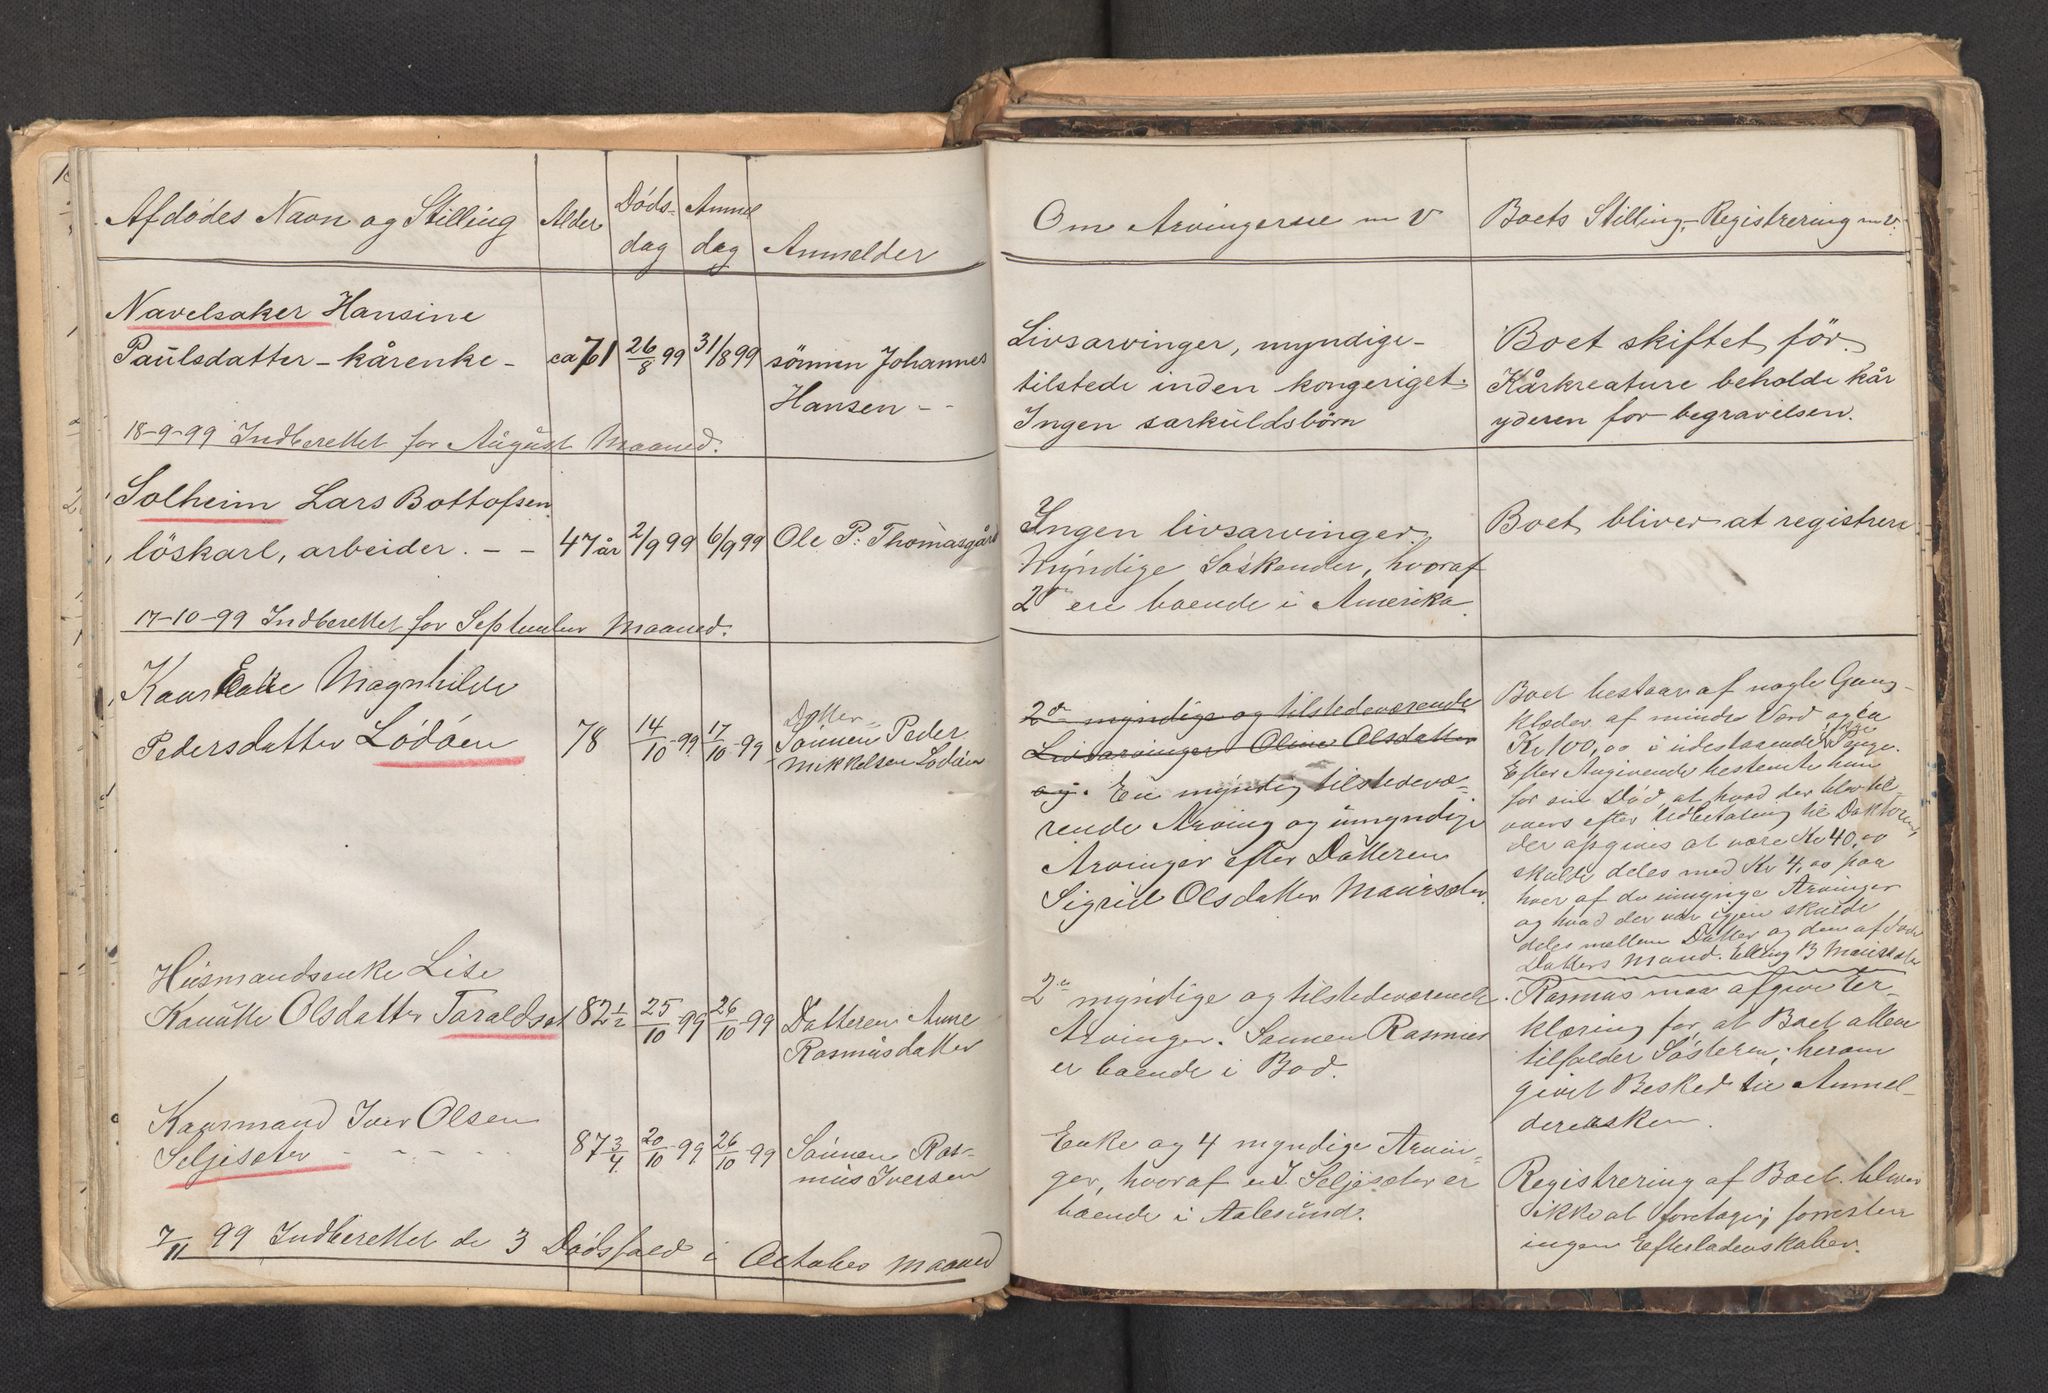 Afdødes Navn og Stilling
Alder
Døds-
dag
Anmel
dag
Anmelder
Navelsaker Hansine
Paulsdatter - kårenke -
ca 761
26/8 99
31/8 99
sönnen Johannes
Hansen - -
18-9-99 Indberettet for August Maaned.
Solheim Lars Bottofsen
löskarl, arbeider. - -
47 år
2/9 99
6/9 99
Ole P. Thomasgård
17-10-99 Indberettet for September Maaned.
Kaarenke Magnhilde
Pedersdatter Lødøen
78
14/10-99
17/10-99
Datter-
Sønnen Peder
Mikkelsen Lødøen
Husmandsenke Lise
Knutte Olsdatter Taraldset
82 1/2
25/10-99
26/10-99
Datteren Anne
Rasmusdatter
Kaarmand Iver Olsen
Seljesæter - - - -
87 3/4
20/10-99
26/10-99
Sønnen Ras-
mus Iversen
7/11 99 Indberettet de 3 Dødsfald i October Maaned
Om Arvingerne m v
Boets Stilling, Registrering m v.
Livsarvinger, myndige-
tilstede inden kongeriget.
Ingen særkuldsbörn
Boet skiftet för.
Kårkreature beholde kår
yderen for begravelsen.
Ingen livsarvinger.
Myndige Søskender, hvoraf
2de ere boende i Amerika.
Boet bliver at registrere
2de myndige og tilstedeværende
Livsarvinger Oline Olsdatter
og. En myndig tilstedevæ-
rende Arving og umyndige
Arvinger efter Datteren
Sigrid Olsdatter Maursæter.
Boet bestaar af nogle Gang-
klæder af mindre Værd og ca
Kr 100,00 i udestaaende Penge.
Efter Angivende bestemte hun
før sin Død, at hvad der blev til-
overs efter Udbetaling til Doktoren,
der opgives at være Kr 40,00
skulde deles med Kr 4,00 paa
hver af de umynige Arvinger
og hvad der var igjen skulde
deles mellem Datter og den afdøde
Datters Mand. Elling B Maursæter
2de myndige og tilstedeværende
Arvinger. Sønnen Rasmus
er boende i Bod.
Rasmus maa afgive Er-
klæring for, at Boet allene
tilfalder Søsteren; herom
givet Besked til Anmel-
derersken.
Enke og 4 myndige Arvin-
ger, hvoraf en I. Seljesæter er
boende i Aalesund.
Registrering af Boet bliver
ikke at foretage; forresten
ingen Efterladenskaber.